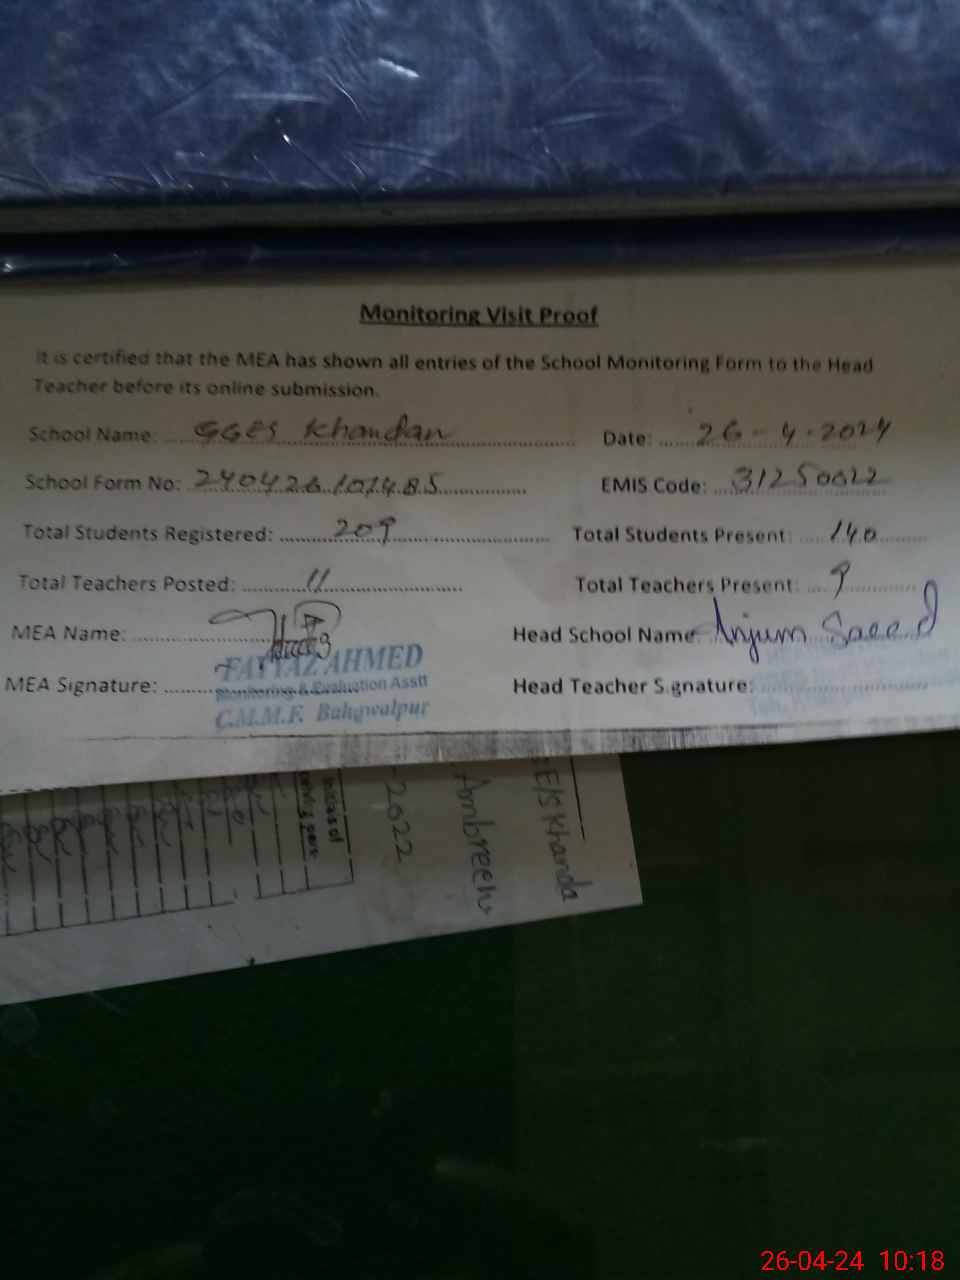 Monitoring Visit Proof
It is certified that the MEA has shown all entries of the School Monitoring Form to the Head
Teacher before its online submission.
School Name: GGES Khandan Date: 26-4-2024
School Form No: 240426101485 EMIS Code: 31250022
Total Students Registered: 209 Total Students Present: 140
Total Teachers Posted: 11 Total Teachers Present: 9
MEA Name: Head School Name Anjum Saeed
FAYYAZ AHMED
MEA Signature: Monitoring & Evaluation Asstt Head Teacher Signature:
C.M.M.F. Bahawalpur
E/S Khanda
Ambreen
-2022
Initials of
26-04-24 10:18